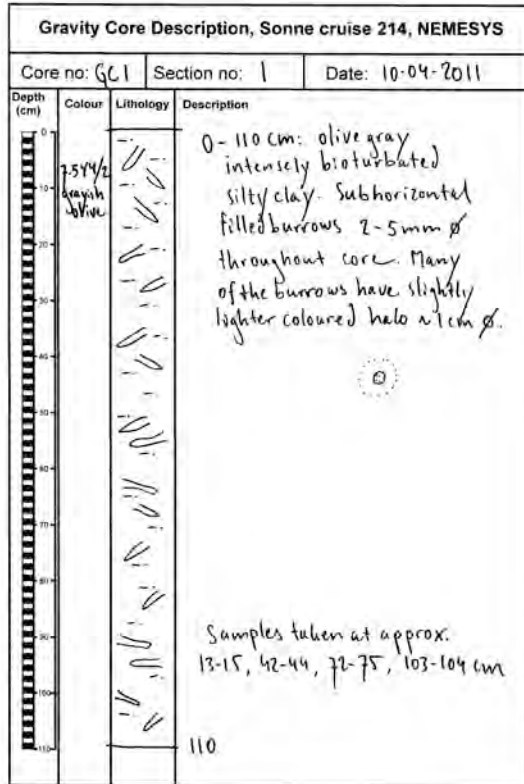 Gravity Core Description, Sonne cruise 214, NEMESYS
Core no: GC1 Section no: 1 Date: 10-04-2011
Depth (cm) Colour Lithology Description
0
7.5Y4/2
grayish
olive
10
20
30
40
50
60
70
80
90
100
110
0-110 cm: olive gray
intensely bioturbated
silty clay. Subhorizontal
filled burrows 2-5mm ø
throughout core. Many
of the burrows have slightly
lighter coloured halo ~1cm ø.
Samples taken at approx.
13-15, 42-44, 72-75, 103-104 cm
110